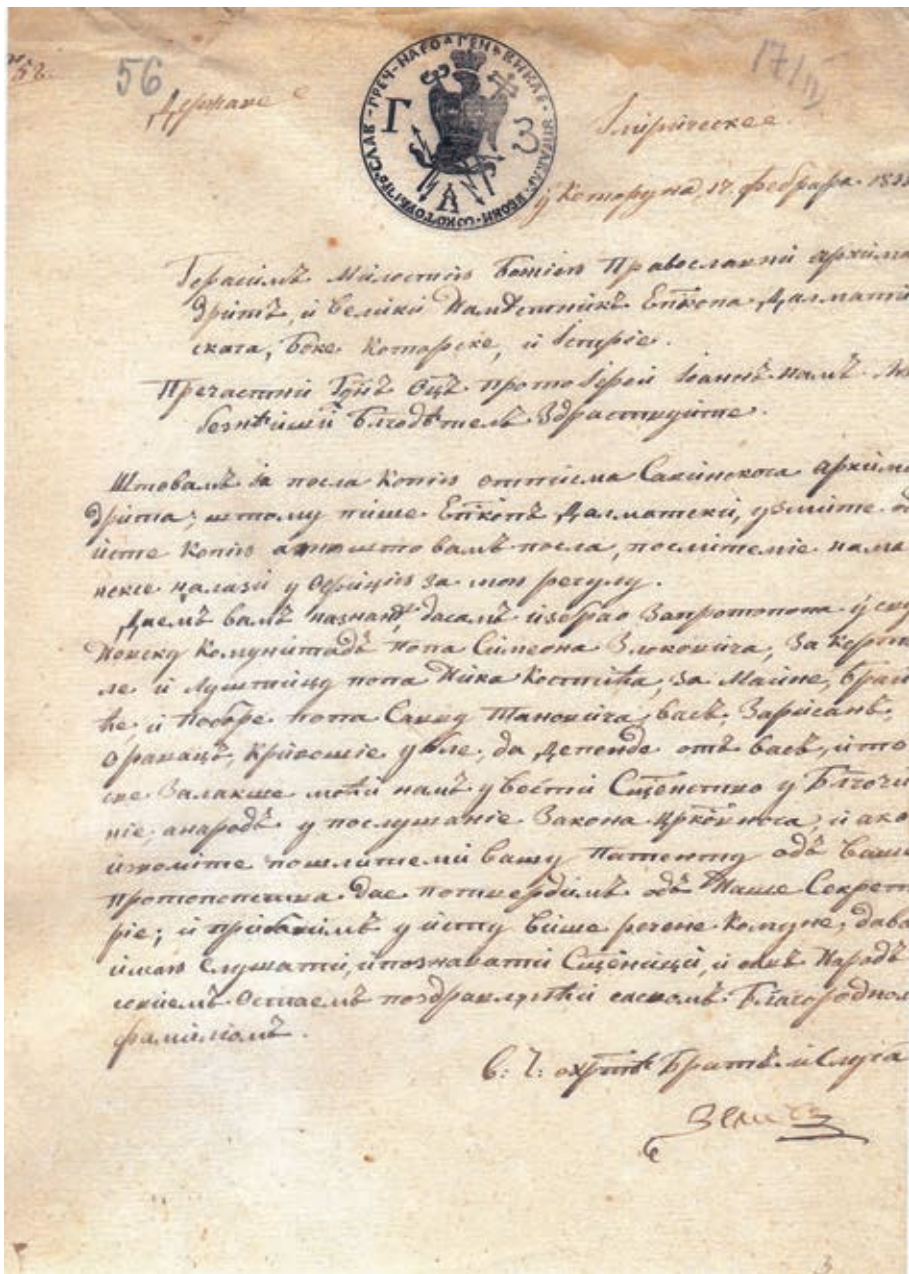 56
17/II
Державе
Илирическее.
Г З А
у Котору на, 17. фебрара. 181
Герасімъ Милостию Божіею Православній архіма
дритъ, и Велики Намѣстникъ Епкопа Далматі
скага, Боке Которске, и Істріе.
Пречастній Гднъ Оцъ протоіерей Іоаннъ намъ Лю
безнѣйшій Блгодѣтель Здраствуйте.
Штовамъ я посла копію отписма Савинскога архима
дрита; штому пише Епкопъ Далматскй, узмите
йсте копію а што вамъ посла, послитеміе нама
нексе налази у Офиціо за мою регулу.
Даемъ вамъ назнанѣ, дасамъ изобрао Запротопопа у
Новску Комунитадъ попа Симеона Злоковича, За Керто
ле и Луштицу попа Ника Костића, За Маине, Браи
ће, и Поборе попа Савву Тановича, васъ, Зарисанъ,
Ораховацъ, Кривошіе, убле, да депенде отъ васъ, ито
све Залакше моћи намъ увести Сщенство у Блгочи
ніе, анародъ у послушаніе Закона црковнога, и ако
изволите пошлитеми вашу Патенту одъ ваше
протопопства дае потвердимъ одъ Наше Секрет
ріе; и прибавимъ у исту више речене комуне, дава
имаю слушати, ипознавати Сщеници, и Народъ
Остаемъ поздравляюћи сасвомъ Благородном
фамиліомъ.
Братъ и Слуга
Зеличъ